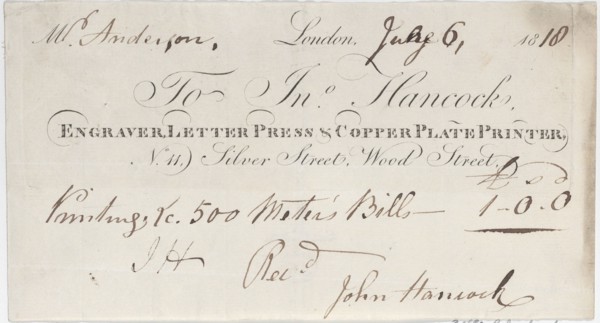 Mr. Anderson, London, July 6, 1818
To Jno. Hancock,
ENGRAVER, LETTER PRESS & COPPER PLATE PRINTER,
N. 11, Silver Street, Wood Street.
£ s d
Printing &c. 500 Meter's Bills — 1-0.0
JH Recd
John Hancock